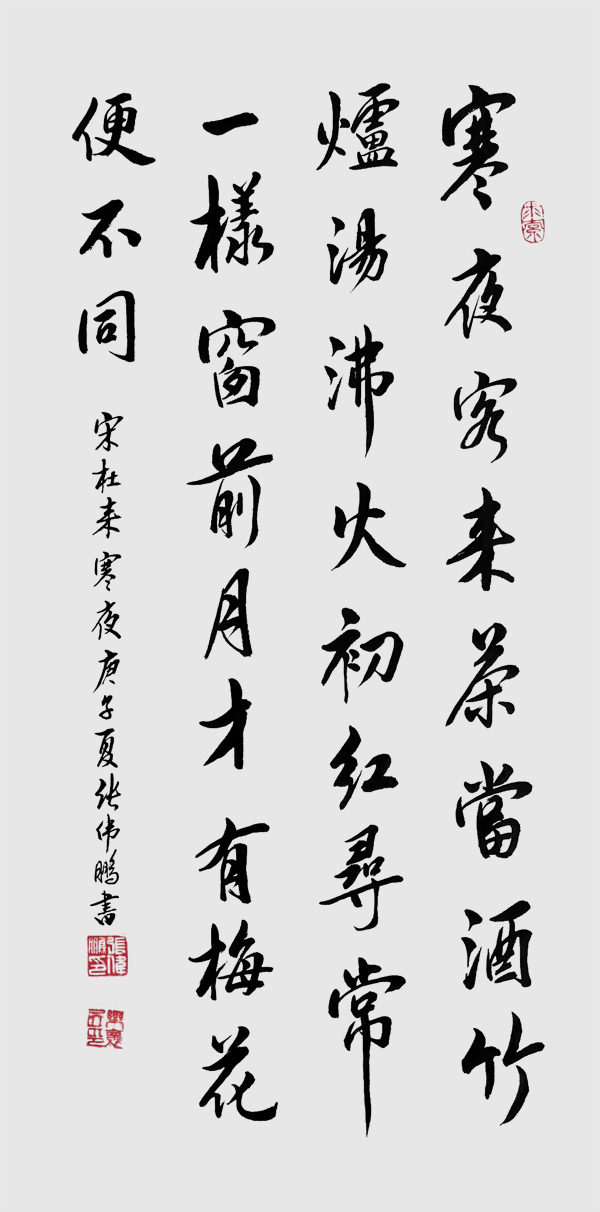 寒夜客来茶當酒竹
爐湯沸火初紅尋常
一樣窗前月才有梅花
便不同
宋杜来寒夜庚子夏张伟鹏書
張偉鵬印